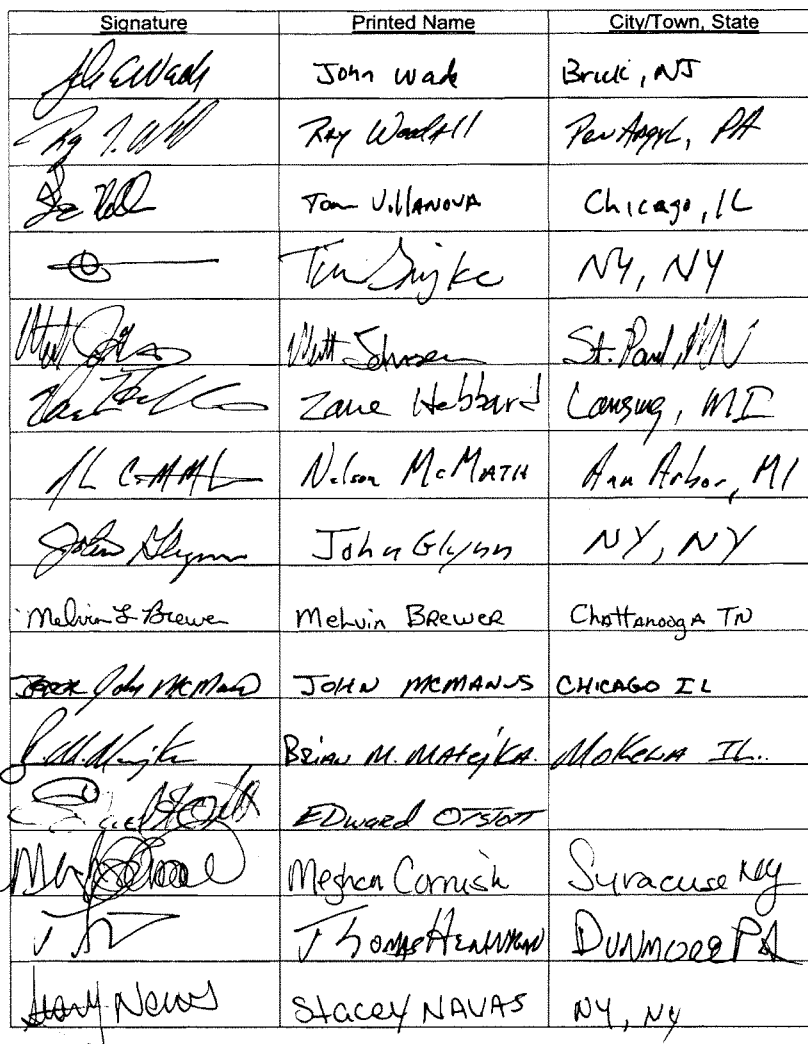 Signature Printed Name City/Town, State
John Wade Brick, NJ
Ray Woodall Pen Argyl, PA
Tom Villanova Chicago, IL
Tim NY, NY
Matt Johnson St. Paul, MN
Zane Hebbard Lansing, MI
Nelson McMath Ann Arbor, MI
John Glynn John Glynn NY, NY
Melvin L Brewer Melvin Brewer Chattanooga TN
John McManus JOHN MCMANUS CHICAGO IL
Brian M. Matejka. Mokena IL.
Edward Otstott
Meghan Cornish Syracuse NY
Thomas Dunmore PA
Stacey Navas Stacey NAVAS NY, NY